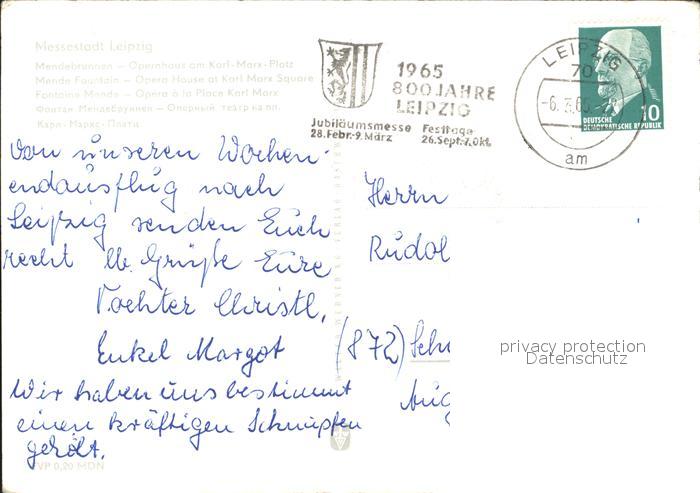 Messestadt Leipzig
Mendebrunnen — Opernhaus am Karl-Marx-Platz
Mende Fountain — Opera House at Karl Marx Square
Fontaine Mende — Opéra à la Place Karl Marx
Фонтан Мендебруннен — Оперный театр на пл.
Карл-Маркс-Платц
1965
800 JAHRE
LEIPZIG
Jubiläumsmesse Festtage
28.Febr.-9.März 26.Sept.-7.Okt.
LEIPZIG
70
am
10
DEUTSCHE
DEMOKRATISCHE REPUBLIK
von unseren Wochen-
endausflug nach
Leipzig senden Euch
recht lb. Grüße Eure
Tochter Christl,
Enkel Margot
Wir haben uns bestimmt
einen kräftigen Schnupfen
geholt.
Herrn
Rudol
(872) Schn
privacy protection
Datenschutz
VP 0,20 MDN